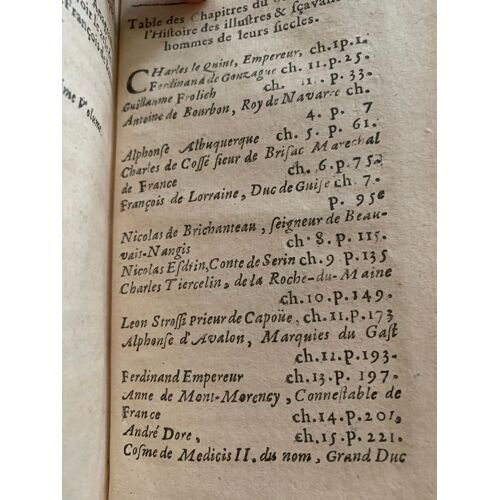 Table des Chapitres du
l'Histoire des illustres & sçavans
hommes de leurs siecles.
CHarles le Quint, Empereur, ch.1p.1.
Ferdinand de Gonzague ch. 11.p.25.
Guillaume Frolich ch. 11. p. 33.
Antoine de Bourbon, Roy de Navarre ch.
4. p. 7
Alphonse Albuquerque ch. 5. p. 61.
Charles de Cossé sieur de Brisac Marechal
de France ch. 6.p.75.
François de Lorraine, Duc de Guise ch. 7.
p. 95
Nicolas de Brichanteau, seigneur de Beau-
vais-Nangis ch. 8. p. 115.
Nicolas Esdrin, Conte de Serin ch. 9 p.135
Charles Tiercelin, de la Roche-du-Maine
ch.10.p.149.
Leon Strossi Prieur de Capoüe, ch.11.p.173
Alphonse d'Avalon, Marquies du Gast
ch.12.p.193.
Ferdinand Empereur ch.13.p. 197.
Anne de Mont-Morency, Connestable de
France ch.14.p.201.
André Dore, ch.15.p. 221.
Cosme de Medicis II. du nom, Grand Duc
me Volume.